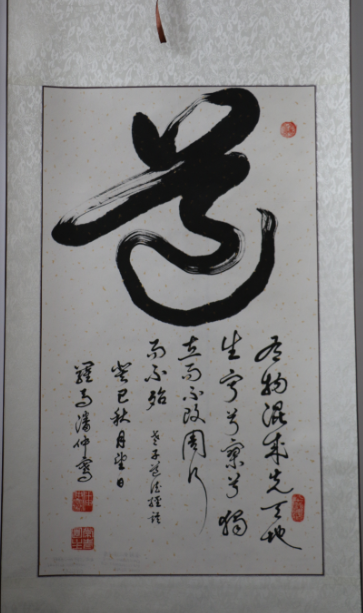 道
有物混成先天地
生寂兮寥兮獨
立而不改周行
而不殆 老子道德經語
癸巳秋月望日
羅